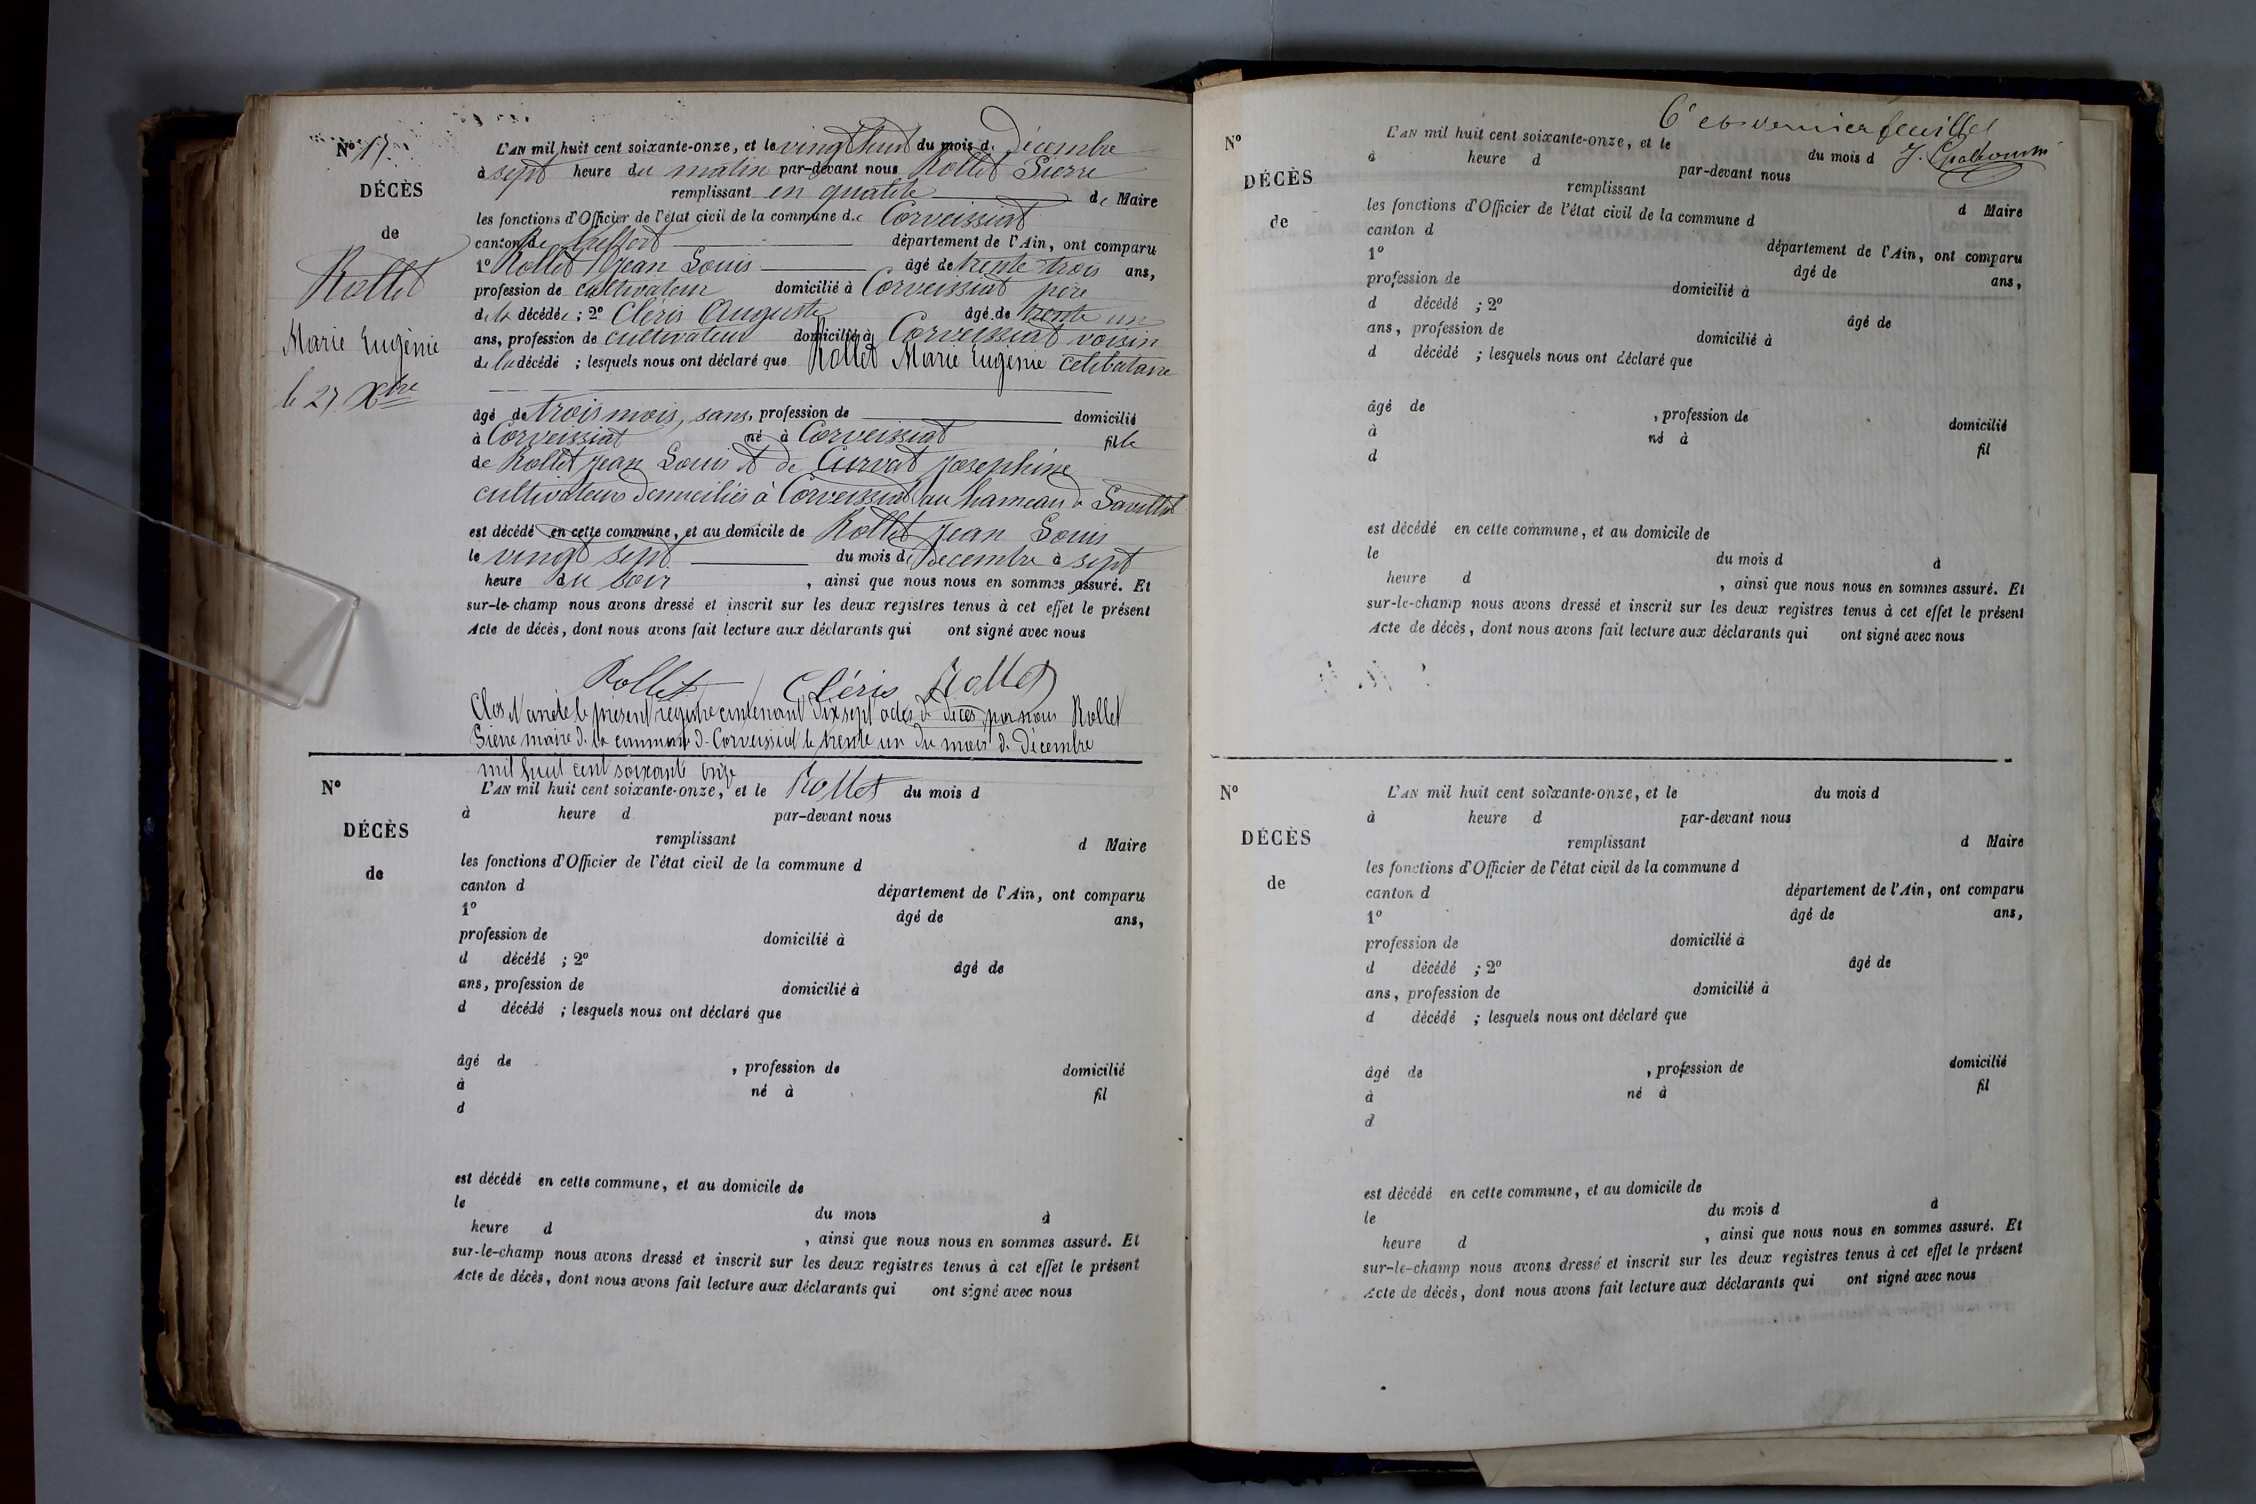 Nº 17
DÉCÈS
de
Rollet
Marie Eugènie
le 27 Xbre
L'AN mil huit cent soixante-onze, et le vingt huit du mois de Décembre
à sept heure du matin par-devant nous Rollet Pierre
remplissant en qualité de Maire
les fonctions d'Officier de l'état civil de la commune de Corveissiat
canton de Treffort département de l'Ain, ont comparu
1º Rollet Jean Louis âgé de trente trois ans,
profession de cultivateur domicilié à Corveissiat père
de la décédée ; 2º Cléris Auguste âgé de trente un
ans, profession de cultivateur domicilié à Corveissiat voisin
de la décédé ; lesquels nous ont déclaré que Rollet Marie Eugènie celibataire
âgé de trois mois, sans, profession de domicilié
à Corveissiat né à Corveissiat fille
de Rollet Jean Louis et de Curvat Josephine
cultivateurs domiciliés à Corveissiat au hameau de
est décédé en cette commune, et au domicile de Rollet Jean Louis
le vingt sept du mois de Decembre à sept
heure du soir , ainsi que nous nous en sommes assuré. Et
sur-le-champ nous avons dressé et inscrit sur les deux registres tenus à cet effet le présent
Acte de décès, dont nous avons fait lecture aux déclarants qui ont signé avec nous
Rollet Cléris Rollet
Clos et arrêté le présent registre contenant dix sept actes de décès par nous Rollet
Pierre maire de la commune de Corveissiat le trente un du mois de Décembre
mil huit cent soixante onze
Rollet
Nº
DÉCÈS
de
L'AN mil huit cent soixante-onze, et le du mois d
à heure d par-devant nous
remplissant d Maire
les fonctions d'Officier de l'état civil de la commune d
canton d département de l'Ain, ont comparu
1º âgé de ans,
profession de domicilié à
d décédé ; 2º âgé de
ans, profession de domicilié à
d décédé ; lesquels nous ont déclaré que
âgé de , profession de domicilié
à né à fil
d
est décédé en cette commune, et au domicile de
le du mois à
heure d , ainsi que nous nous en sommes assuré. Et
sur-le-champ nous avons dressé et inscrit sur les deux registres tenus à cet effet le présent
Acte de décès, dont nous avons fait lecture aux déclarants qui ont signé avec nous
6e et dernier feuillet
Nº
DÉCÈS
de
L'AN mil huit cent soixante-onze, et le du mois d
à heure d par-devant nous
remplissant d Maire
les fonctions d'Officier de l'état civil de la commune d
canton d département de l'Ain, ont comparu
1º âgé de ans,
profession de domicilié à
d décédé ; 2º âgé de
ans, profession de domicilié à
d décédé ; lesquels nous ont déclaré que
âgé de , profession de domicilié
à né à fil
d
est décédé en cette commune, et au domicile de
le du mois d à
heure d , ainsi que nous nous en sommes assuré. Et
sur-le-champ nous avons dressé et inscrit sur les deux registres tenus à cet effet le présent
Acte de décès, dont nous avons fait lecture aux déclarants qui ont signé avec nous
Nº
DÉCÈS
de
L'AN mil huit cent soixante-onze, et le du mois d
à heure d par-devant nous
remplissant d Maire
les fonctions d'Officier de l'état civil de la commune d
canton d département de l'Ain, ont comparu
1º âgé de ans,
profession de domicilié à
d décédé ; 2º âgé de
ans, profession de domicilié à
d décédé ; lesquels nous ont déclaré que
âgé de , profession de domicilié
à né à fil
d
est décédé en cette commune, et au domicile de
le du mois d à
heure d , ainsi que nous nous en sommes assuré. Et
sur-le-champ nous avons dressé et inscrit sur les deux registres tenus à cet effet le présent
Acte de décès, dont nous avons fait lecture aux déclarants qui ont signé avec nous